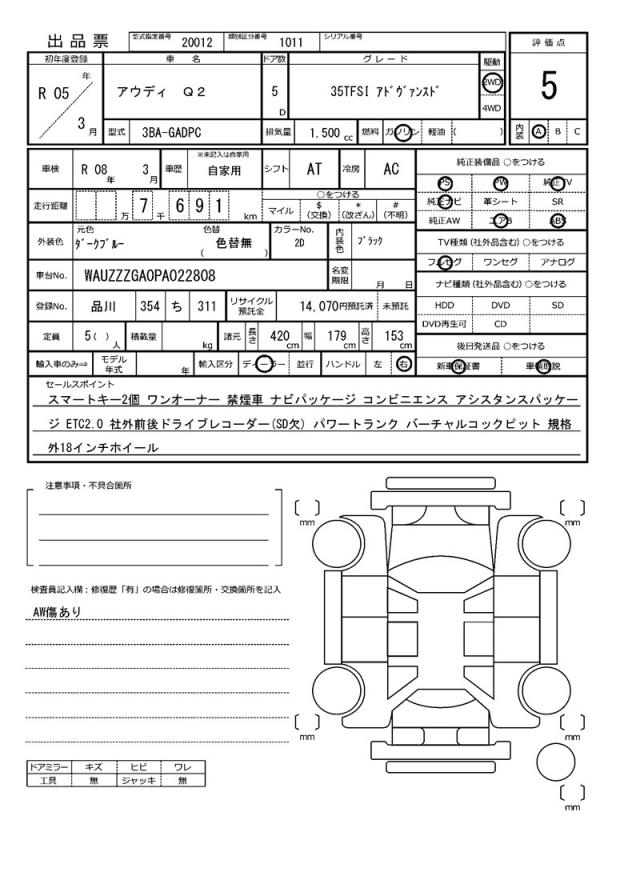 出品票 型式指定番号 20012 類別区分番号 1011 シリアル番号
評価点
初年度登録 車名 ドア数 グレード 駆動
R 05 年 3 月 アウディ Q2 5 D 35TFSI ｱﾄﾞｳﾞｧﾝｽﾄﾞ 2WD 4WD 5
型式 3BA-GADPC 排気量 1.500 cc 燃料 ガソリン 軽油 ( ) 内装 A B C
車検 R 08 年 3 月 車歴 ※未記入は自家用 自家用 シフト AT 冷房 AC
走行距離 万 7 千 6 9 1 km ○をつける
マイル $ (交換) * (改ざん) # (不明)
外装色 元色 ﾀﾞｰｸﾌﾞﾙｰ 色替 ( 色替無 ) カラーNo. 2D 内装色 ﾌﾞﾗｯｸ
車台No. WAUZZZGA0PA022808 名変期限 月 日
登録No. 品川 354 ち 311 リサイクル預託金 14,070円預託済 未預託
定員 5( ) 人 積載量 kg 諸元 長さ 420 cm 幅 179 cm 高さ 153 cm
輸入車のみ⇒ モデル年式 年 輸入区分 ディーラー 並行 ハンドル 左 右
純正装備品 ○をつける
PS PW 純正TV
純正ナビ 革シート SR
純正AW エアB ABS
TV種類(社外品含む) ○をつける
フルセグ ワンセグ アナログ
ナビ種類(社外品含む) ○をつける
HDD DVD SD
DVD再生可 CD
後日発送品 ○をつける
新車保証書 車輌取説
セールスポイント
スマートキー2個 ワンオーナー 禁煙車 ナビパッケージ コンビニエンス アシスタンスパッケー
ジ ETC2.0 社外前後ドライブレコーダー(SD欠) パワートランク バーチャルコックピット 規格
外18インチホイール
注意事項・不具合箇所
検査員記入欄：修復歴「有」の場合は修復箇所・交換箇所を記入
AW傷あり
mm
mm
mm
mm
mm
ドアミラー キズ ヒビ ワレ
工具 無 ジャッキ 無